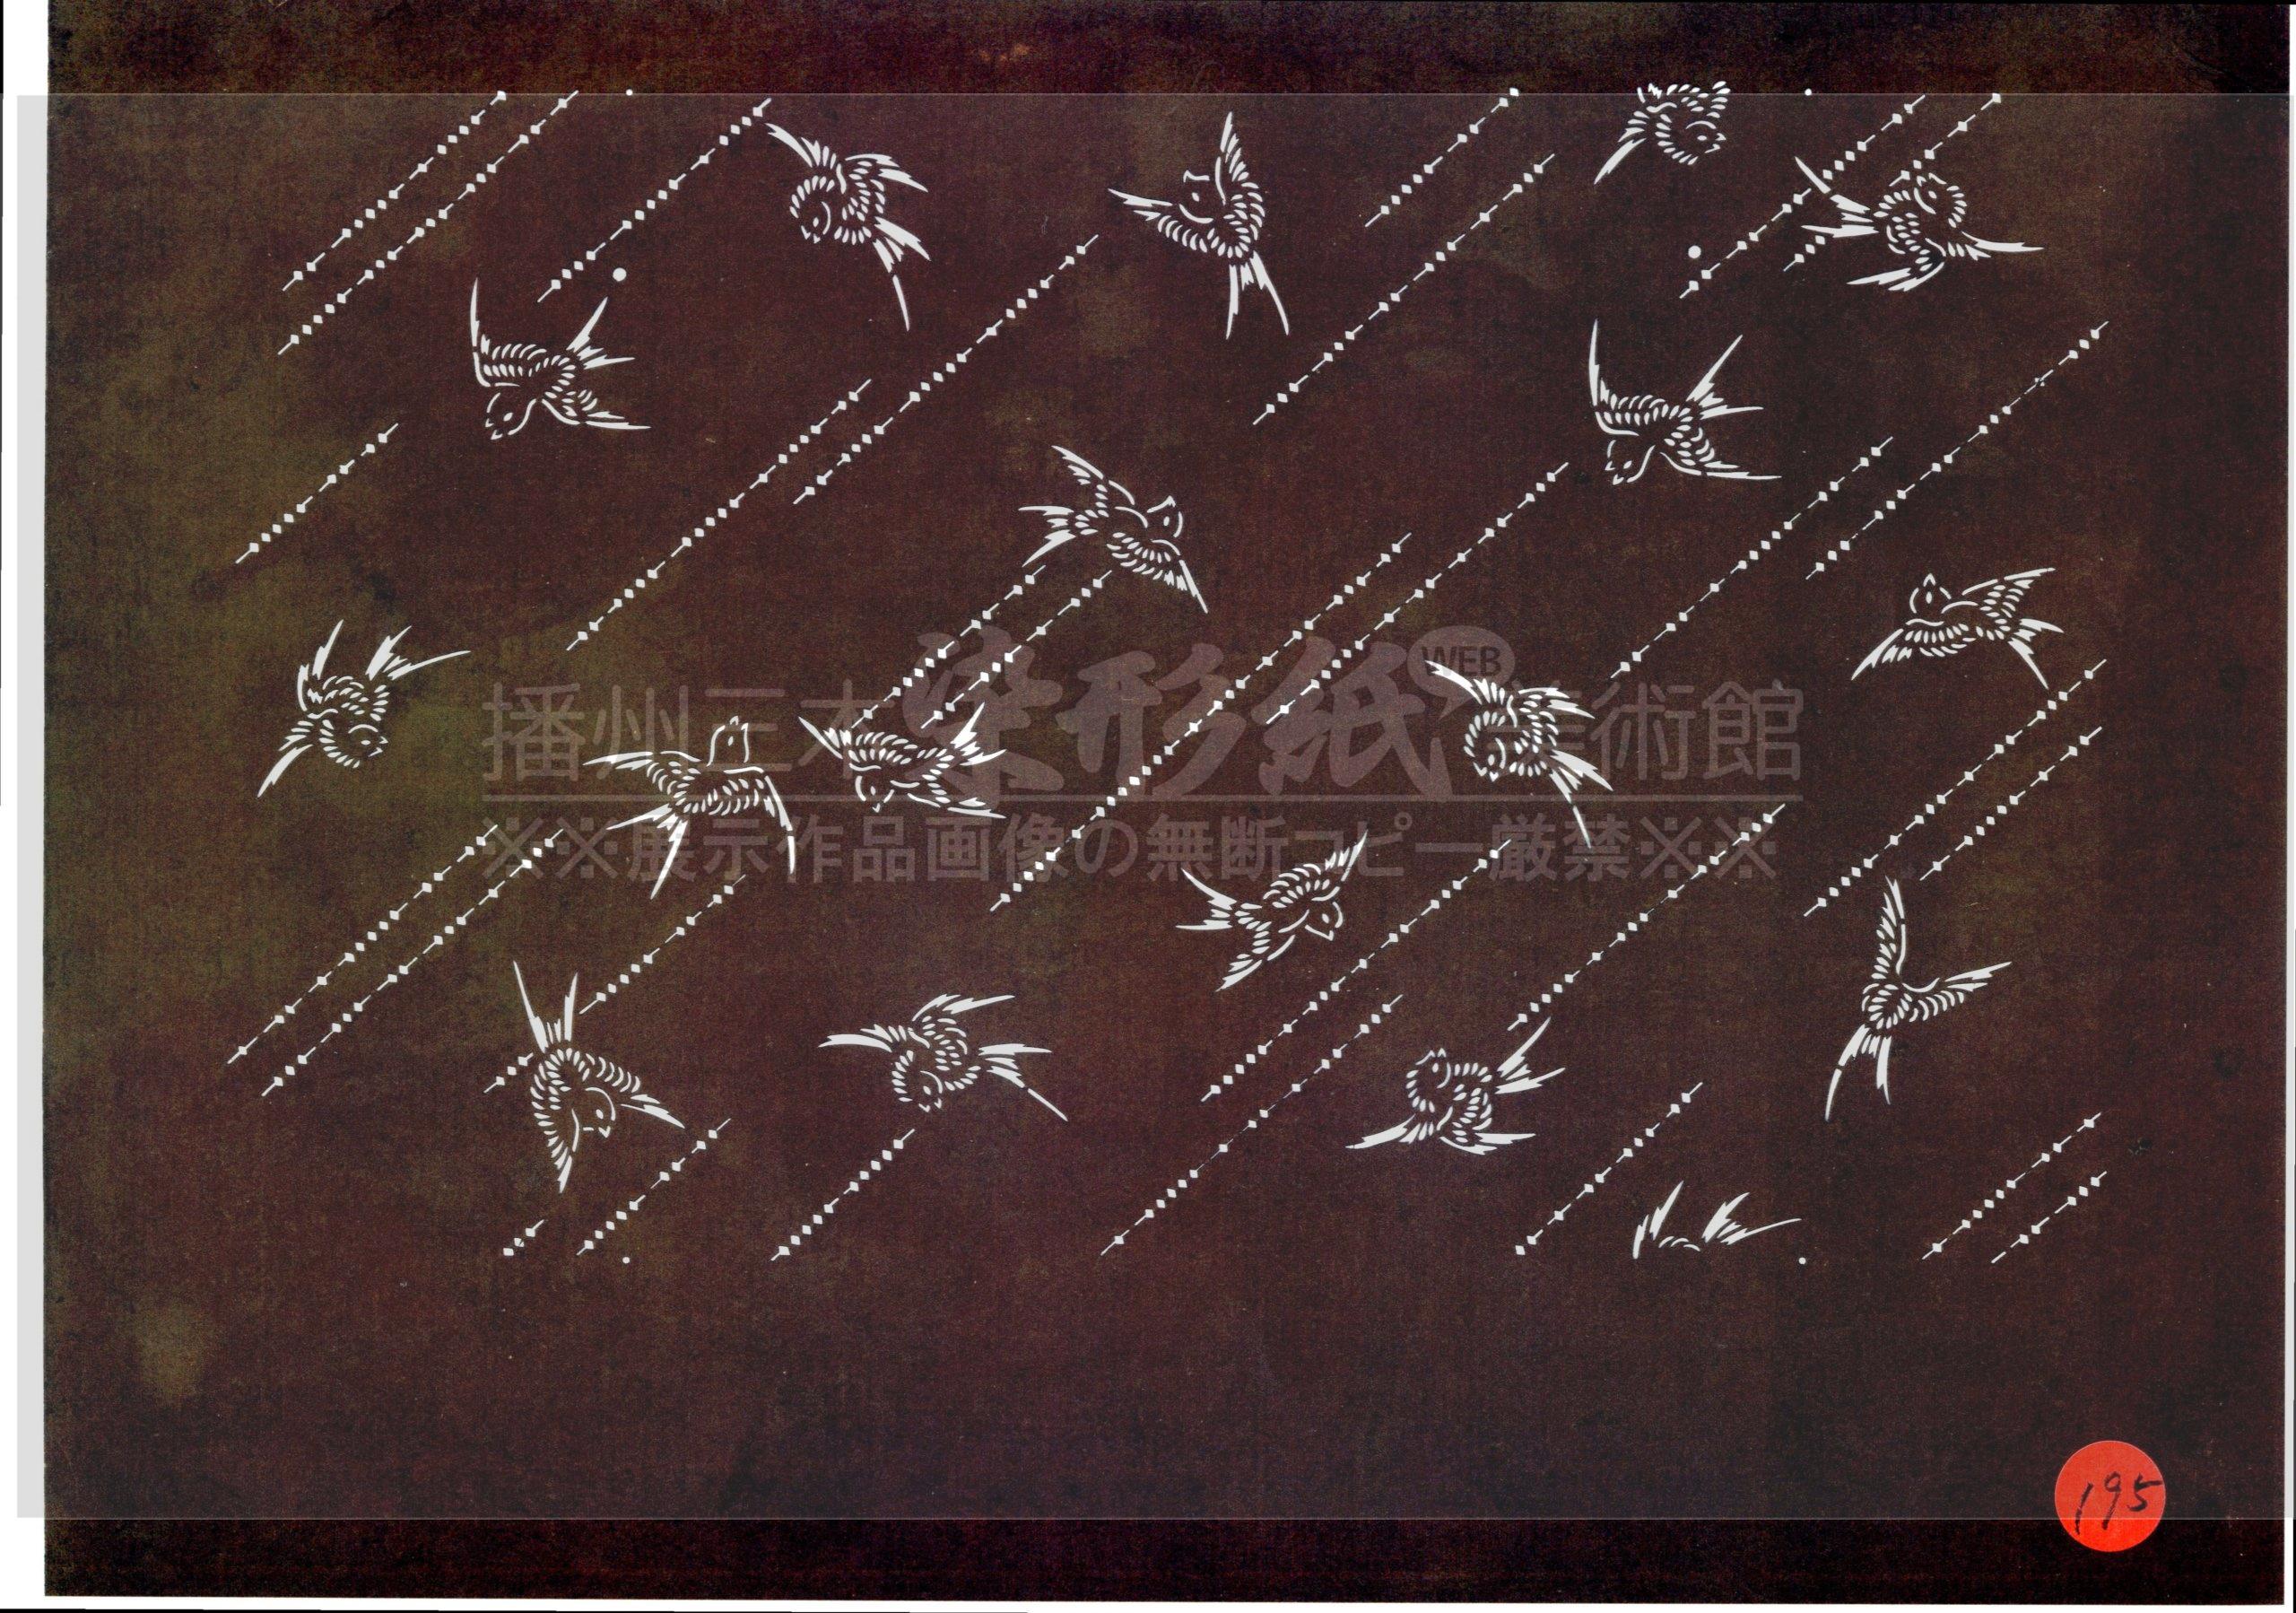 播州三木染形紙WEB美術館
※※展示作品画像の無断コピー厳禁※※
195